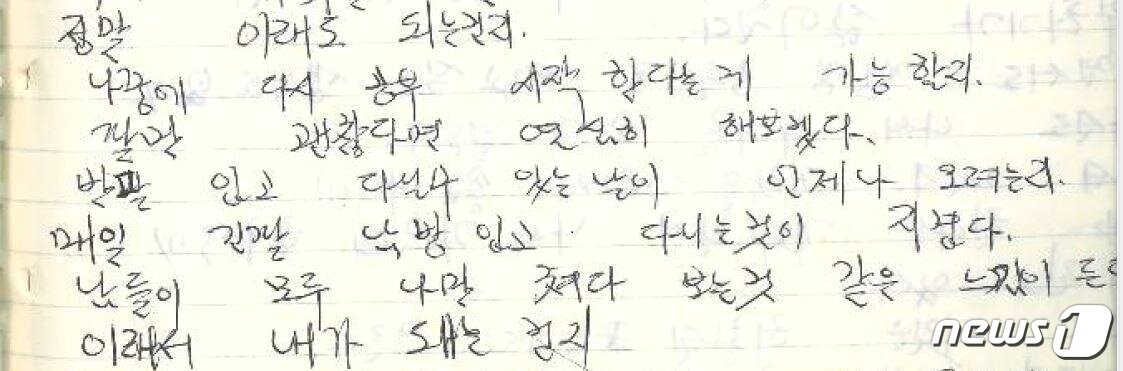 정말 이래도 되는건지.
나중에 다시 공부 시작 한다는게 가능 할지.
팔만 괜찮다면 열심히 해보겠다.
반팔 입고 다닐수 있는 날이 언제나 오려는지.
매일 긴팔 남방 입고 다니는것이 지겹다.
남들이 모두 나만 쳐다 보는것 같은 느낌이
이래서 내가 돼는 건지
news1